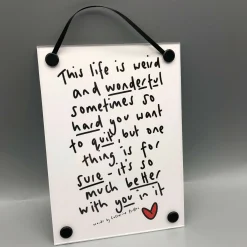 This life is weird
and wonderful
sometimes so
hard you want
to quit but one
thing is for
sure - it's so
much better
with you in it